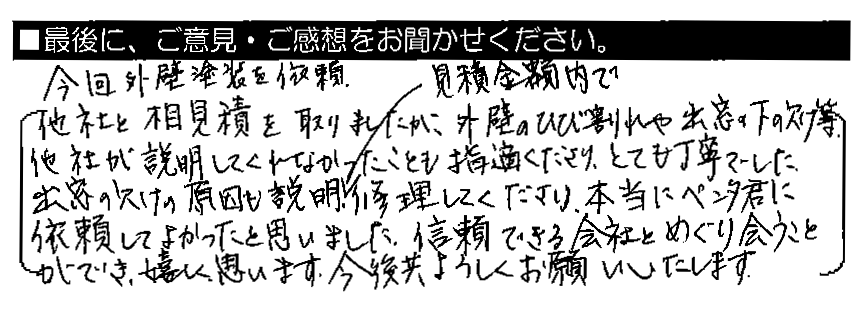 ■最後に、ご意見・ご感想をお聞かせください。
今回外壁塗装を依頼
見積金額内で
他社と相見積を取りましたが、外壁のひび割れや出窓の下の欠け等、
他社が説明してくれなかったことも指適くださり、とても丁寧でした。
出窓の欠けの原因も説明、修理してくださり、本当にペンタ君に
依頼してよかったと思いました。信頼できる会社とめぐり会うこと
ができ、嬉しく思います。今後共よろしくお願いいたします。